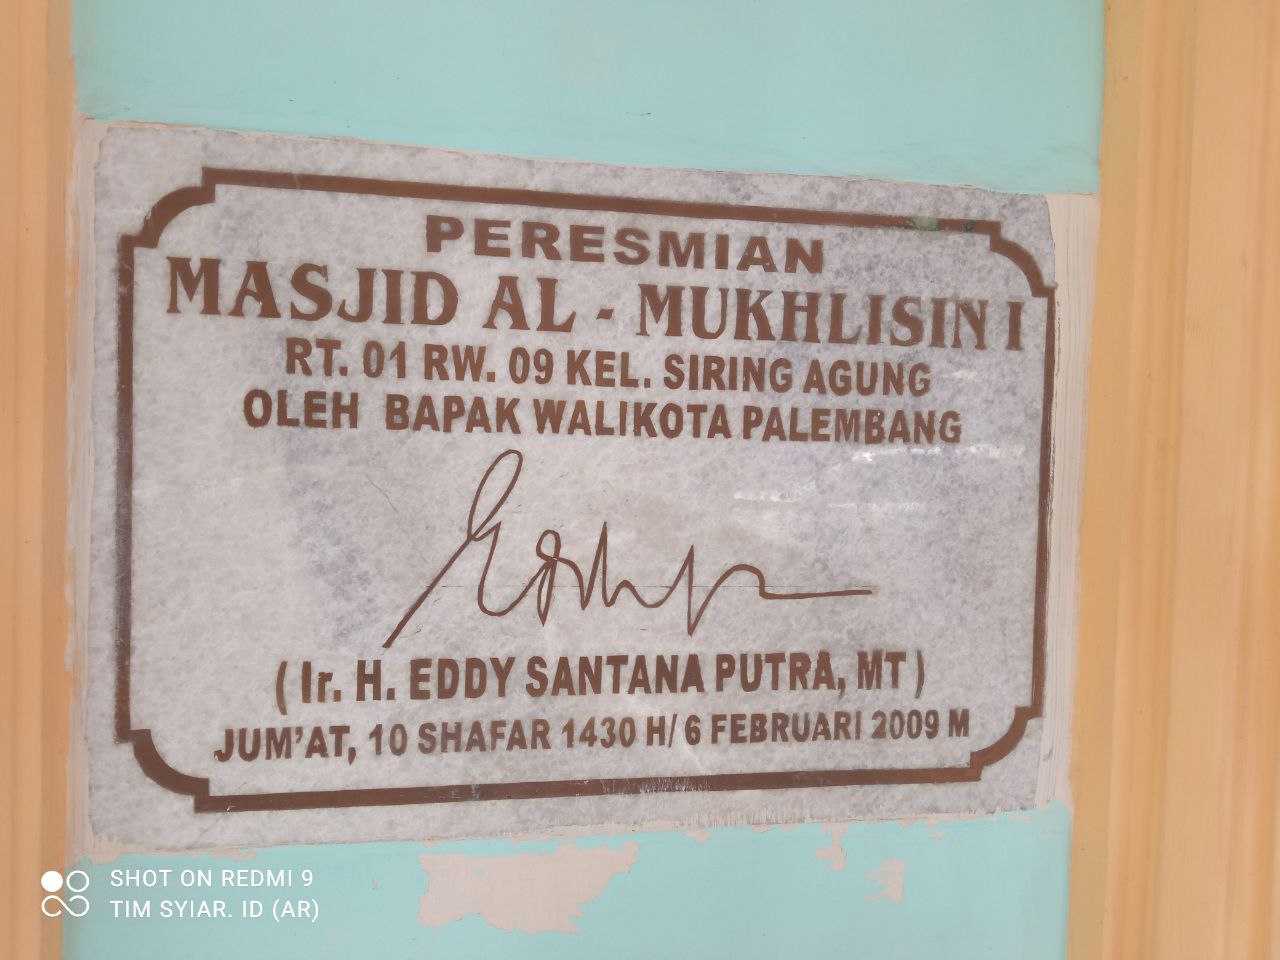 PERESMIAN
MASJID AL - MUKHLISIN I
RT. 01 RW. 09 KEL. SIRING AGUNG
OLEH BAPAK WALIKOTA PALEMBANG
( Ir. H. EDDY SANTANA PUTRA, MT )
JUM'AT, 10 SHAFAR 1430 H/ 6 FEBRUARI 2009 M
SHOT ON REDMI 9
TIM SYIAR. ID (AR)